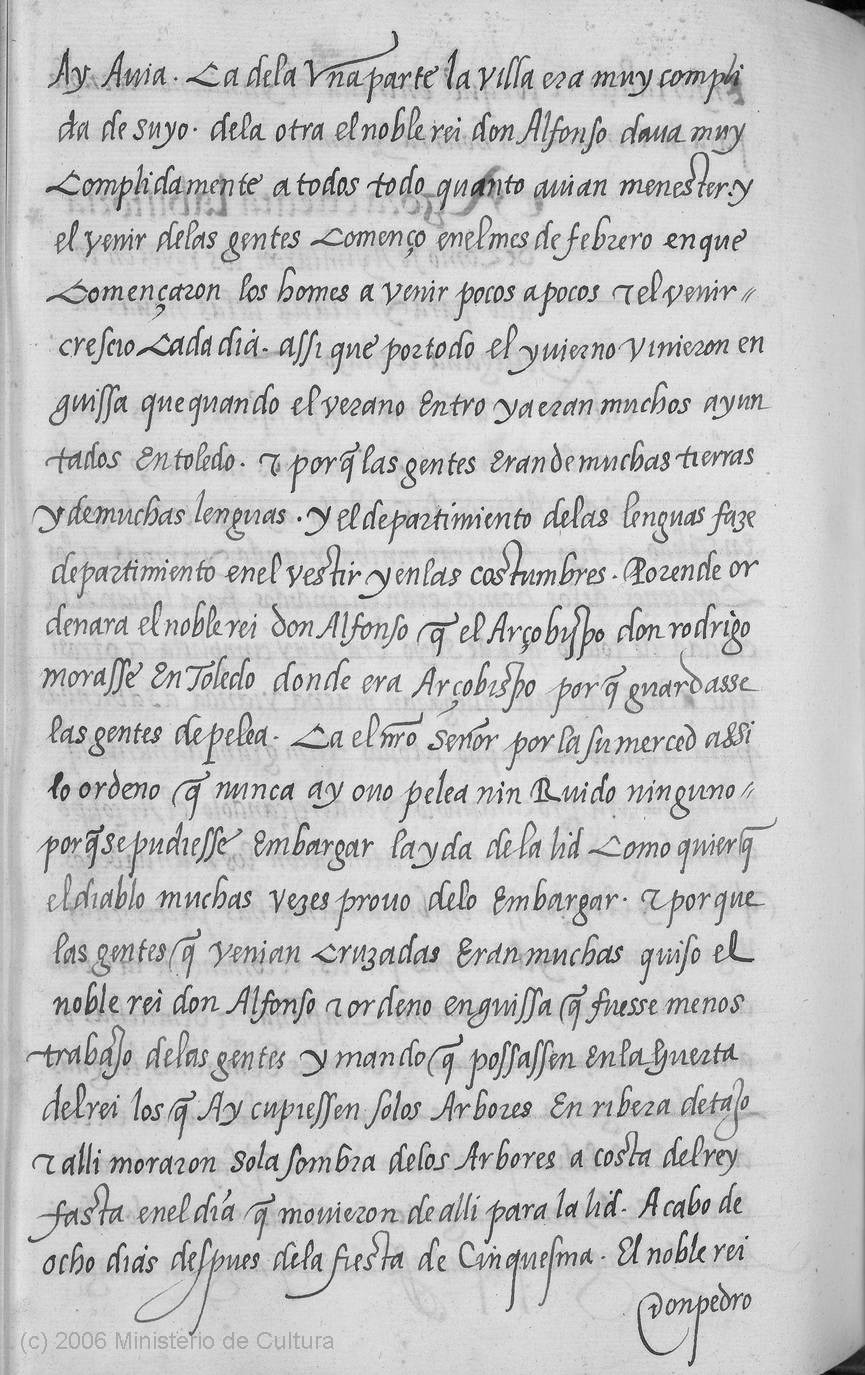 Ay Auia. Ca dela Vña parte la villa era muy compli
da de suyo. dela otra el noble rei don Alfonso daua muy
Complidamente a todos todo quanto auian menester. y
el venir delas gentes Començo enel mes de febrero en que
Començaron los homes a venir pocos a pocos τ el venir //
crescio Cada día. assi que por todo el yuierno vinieron en
guissa que quando el verano Entro ya eran muchos ayun
tados En toledo. τ porq̃ las gentes Eran de muchas tierras
y de muchas lenguas. y el departimiento delas lenguas faze
departimiento enel vestir y enlas costumbres. Porende or
denara el noble rei don Alfonso q̃ el Arçobispo don rodrigo
morasse En Toledo donde era Arçobispo porq̃ guardasse
las gentes de pelea. Ca el nr̃o Señor por la su merced assi
lo ordeno q̃ nunca ay ouo pelea nin Ruido ninguno //
porq̃ se pudiesse Embargar la yda dela lid Como quier q̃
el diablo muchas vezes prouo delo Embargar. τ porque
las gentes q̃ venian Cruzadas Eran muchas quiso el
noble rei don Alfonso τ ordeno en guissa q̃ fuesse menos
trabajo delas gentes y mando q̃ possassen En la huerta
del rei los q̃ Ay cupiessen solos Arbores En ribera de tajo
τ alli moraron sola sombra delos Arbores a costa del rey
fasta enel día q̃ mouieron de alli para la lid. A cabo de
ocho días despues dela fiesta de Cinquesma. El noble rei
don pedro
(c) 2006 Ministerio de Cultura